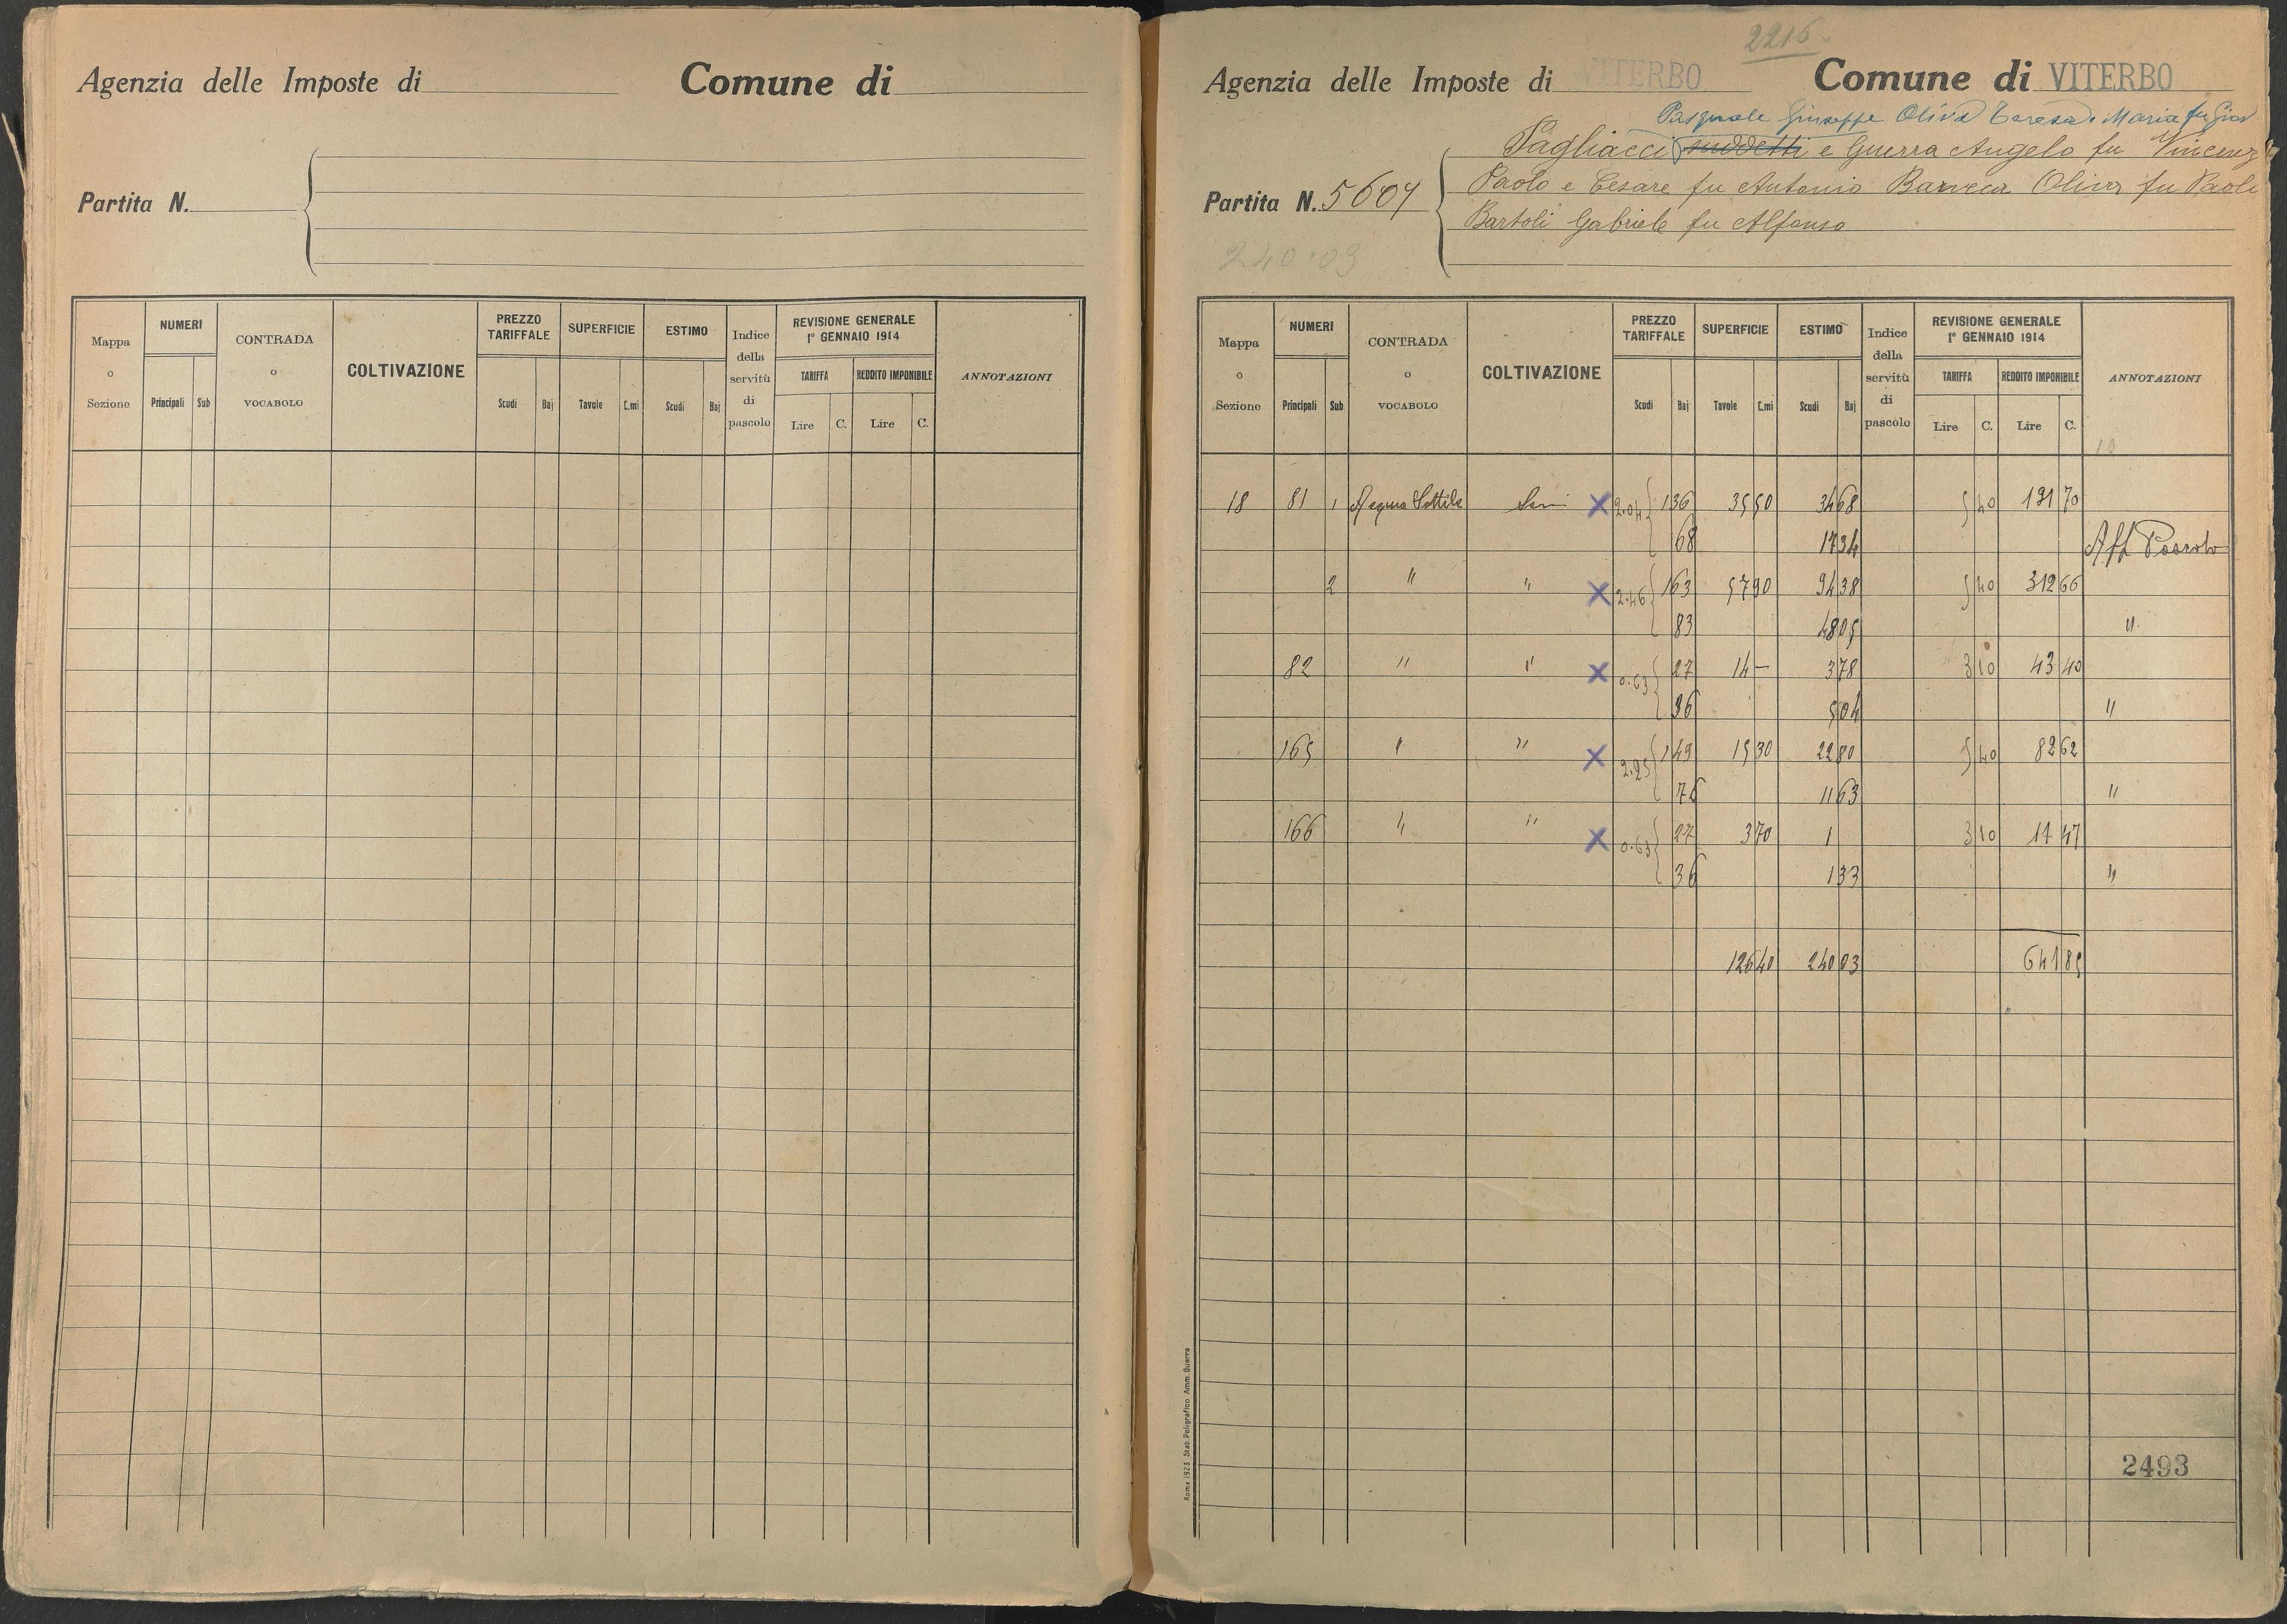 Agenzia delle Imposte di Comune di
Partita N.
Mappa o Sezione NUMERI Principali Sub CONTRADA o VOCABOLO COLTIVAZIONE PREZZO TARIFFALE Scudi Baj SUPERFICIE Tavole C.mi ESTIMO Scudi Baj Indice della servitù di pascolo REVISIONE GENERALE 1° GENNAIO 1914 TARIFFA Lire C. REDDITO IMPONIBILE Lire C. ANNOTAZIONI
2216
Agenzia delle Imposte di VITERBO Comune di VITERBO
Pasquale Giuseppe Oliva Teresa e Maria fu Giov
Pagliacci suddetti e Guerra Angelo fu Vincenz
Partita N. 5604 Paolo e Cesare fu Antonio Oliva fu Paolo
Bartoli Gabriele fu Alfonso
240.03
Mappa o Sezione NUMERI Principali Sub CONTRADA o VOCABOLO COLTIVAZIONE PREZZO TARIFFALE Scudi Baj SUPERFICIE Tavole C.mi ESTIMO Scudi Baj Indice della servitù di pascolo REVISIONE GENERALE 1° GENNAIO 1914 TARIFFA Lire C. REDDITO IMPONIBILE Lire C. ANNOTAZIONI
10
18 81 1 Acqua Sottile Sem X 2.04 1 36 35 50 34 68 5 40 191 70
68 17 34 Aff
2 " " X 2.46 1 63 57 90 94 38 5 40 312 66
83 48 05 "
82 " " X 0.63 27 14 — 3 78 3 10 43 40
36 5 04 "
165 " " X 2.25 1 49 15 30 22 80 5 40 82 62
76 11 63 "
166 " " X 0.63 27 3 70 1 3 10 11 47
36 1 33 "
126 40 240 03 641 85
Roma 1923 Stab. Poligrafico Amm. Guerra
2493